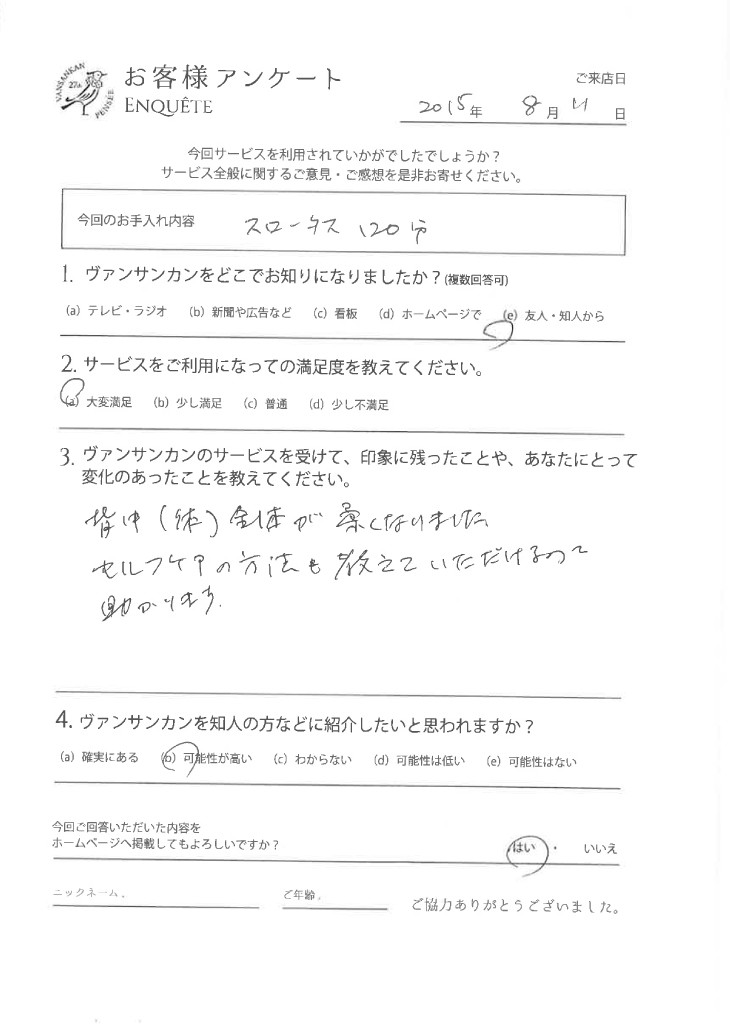 VANSANKAN
27th
PENSÉE
お客様アンケート
ENQUÊTE
ご来店日
2015年 8月 日
今回サービスを利用されていかがでしたでしょうか？
サービス全般に関するご意見・ご感想を是非お寄せください。
今回のお手入れ内容 スロータス 120分
1. ヴァンサンカンをどこでお知りになりましたか？(複数回答可)
(a) テレビ・ラジオ (b) 新聞や広告など (c) 看板 (d) ホームページで (e) 友人・知人から
2. サービスをご利用になっての満足度を教えてください。
(a) 大変満足 (b) 少し満足 (c) 普通 (d) 少し不満足
3. ヴァンサンカンのサービスを受けて、印象に残ったことや、あなたにとって
変化のあったことを教えてください。
背中（体）全体が楽くなりました
セルフケアの方法も教えていただけるので
助かります.
4. ヴァンサンカンを知人の方などに紹介したいと思われますか？
(a) 確実にある (b) 可能性が高い (c) わからない (d) 可能性は低い (e) 可能性はない
今回ご回答いただいた内容を
ホームページへ掲載してもよろしいですか？ はい ・ いいえ
ニックネーム. ご年齢. ご協力ありがとうございました。